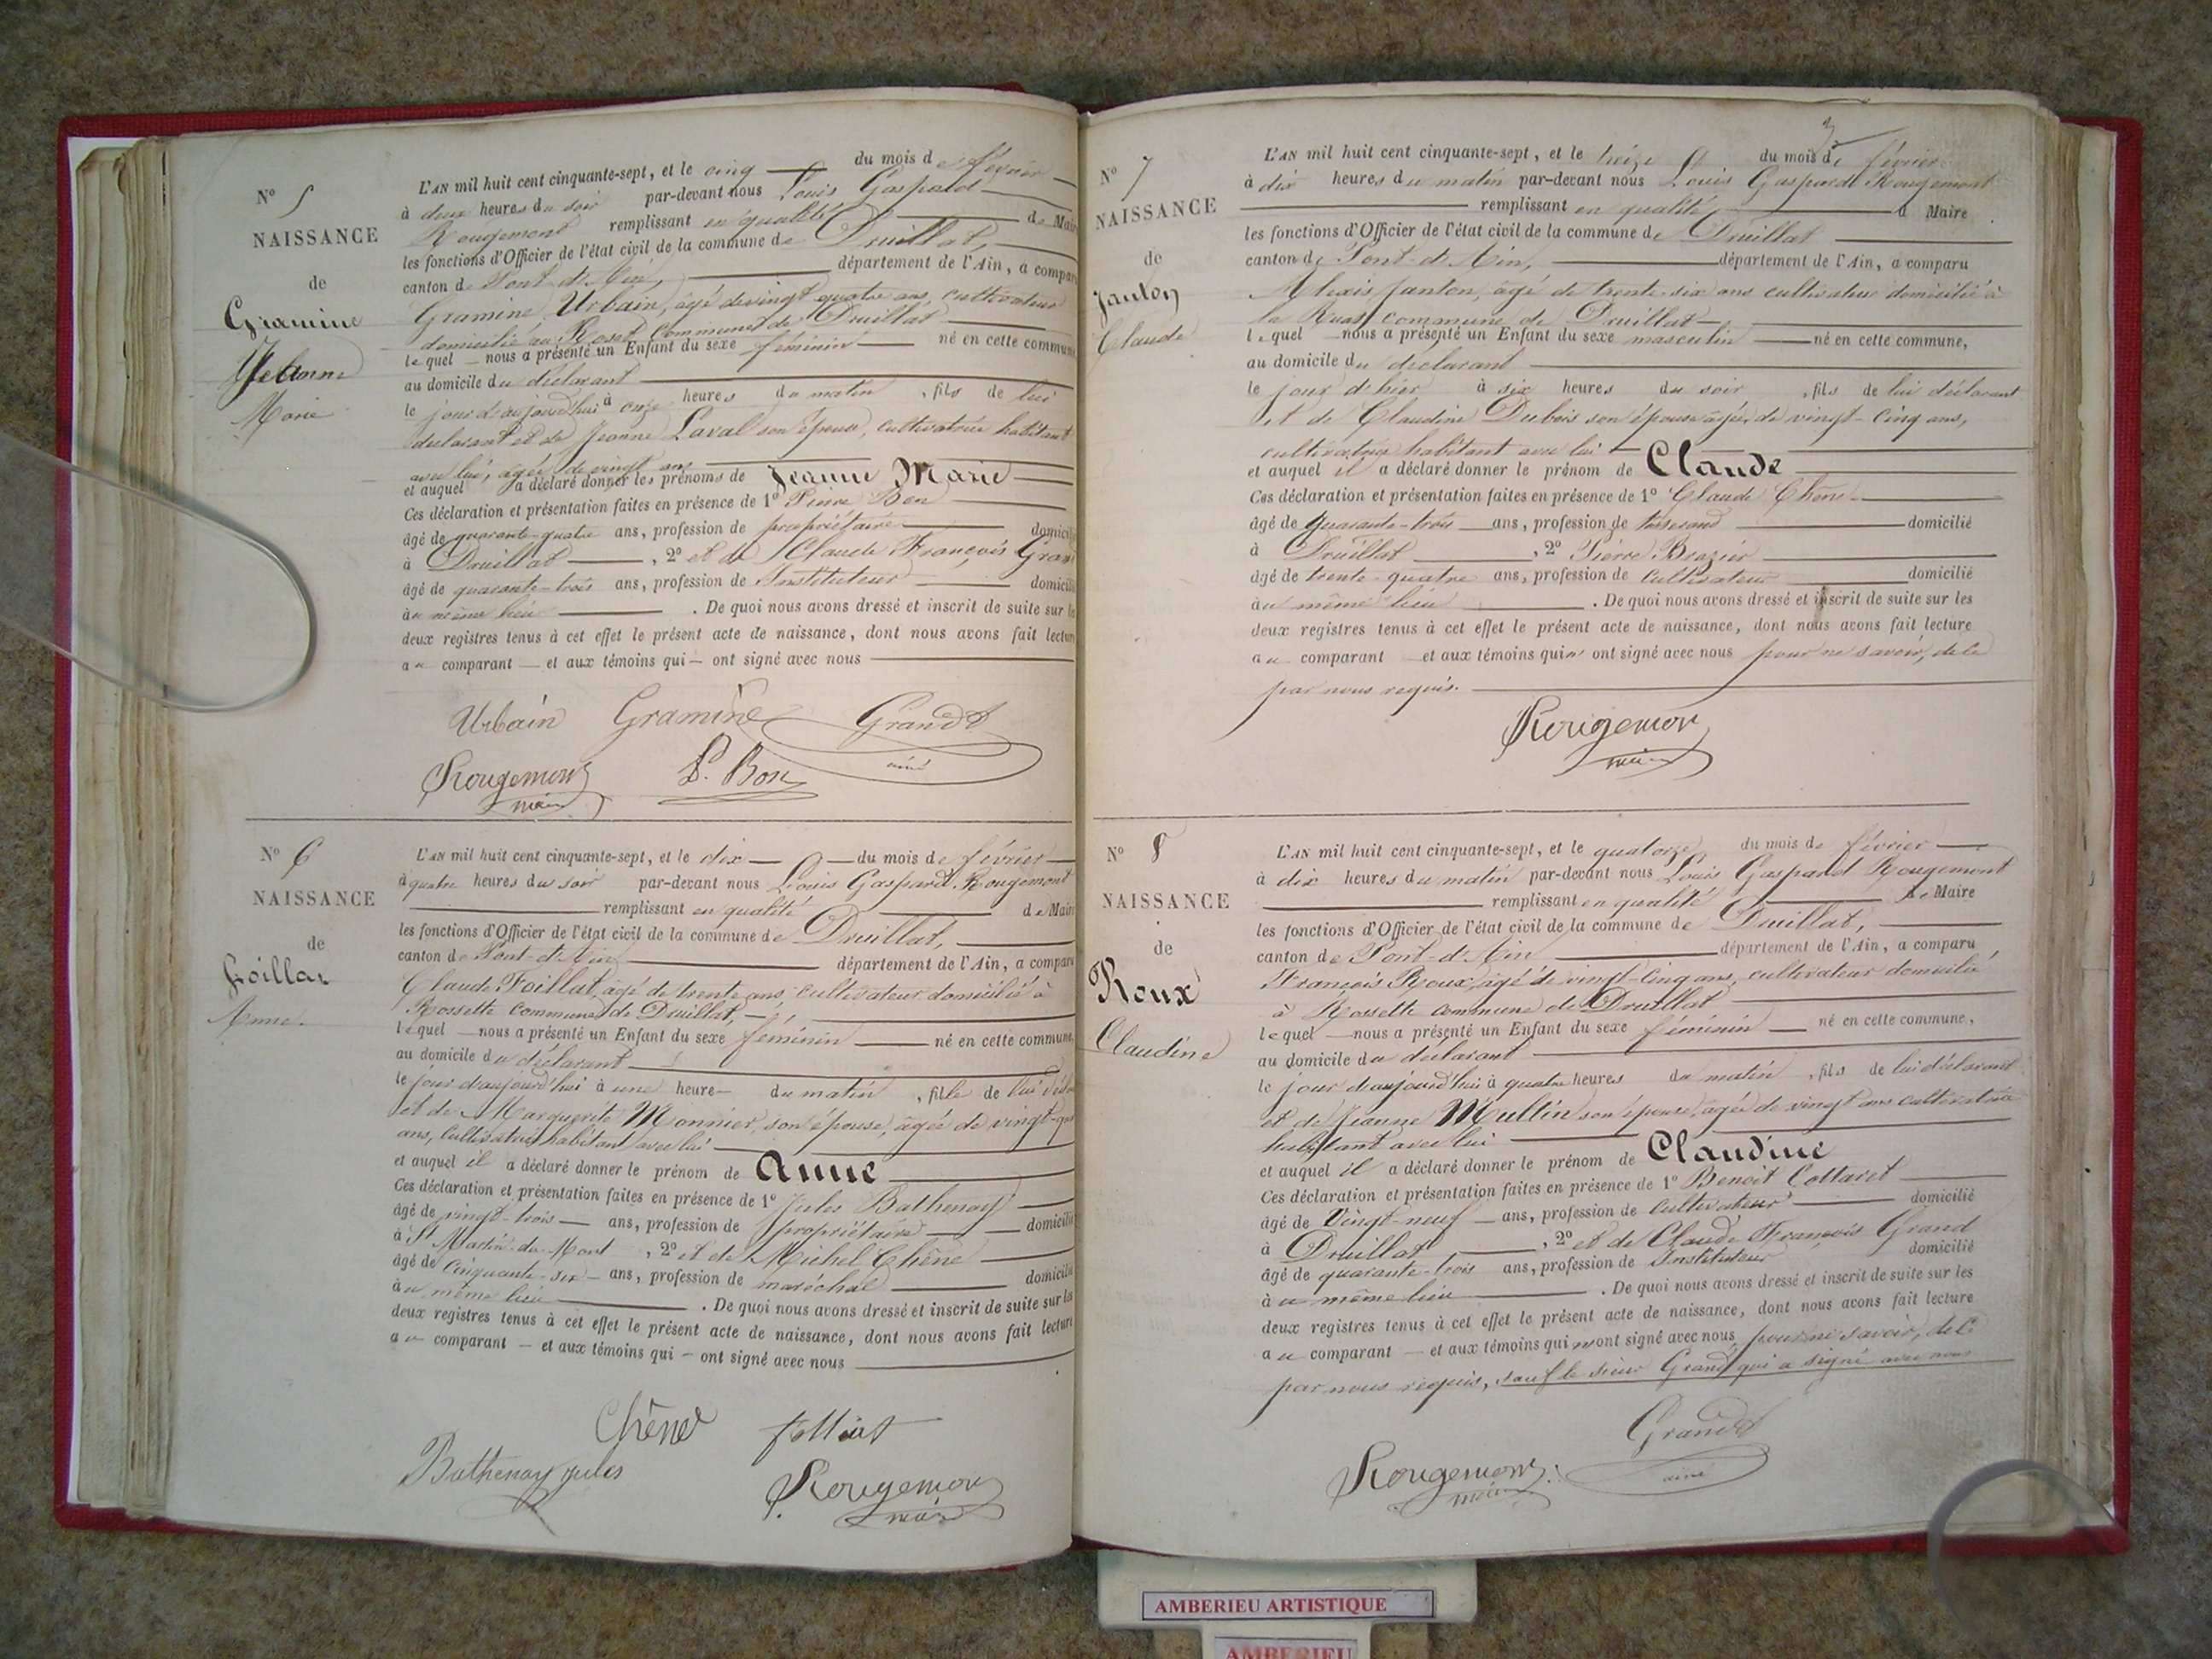 N° 5
NAISSANCE
de
Gramine
Jeanne
Marie
L'AN mil huit cent cinquante-sept, et le cinq du mois de février
à deux heures du soir par-devant nous Louis Gaspard
Rougemont remplissant en qualité de Maire
les fonctions d'Officier de l'état civil de la commune de Druillat,
canton de Pont-d'Ain, département de l'Ain, a comparu
Gramine Urbain, âgé de vingt quatre ans, cultivateur
domicilié au Rosset commune de Druillat
lequel nous a présenté un Enfant du sexe féminin né en cette commune
au domicile du déclarant
le jour d'aujourd'hui à onze heures du matin, fils de lui
déclarant et de Jeanne Laval son épouse, cultivatrice habitant
avec lui, âgée de vingt ans
et auquel a déclaré donner les prénoms de Jeanne Marie
Ces déclaration et présentation faites en présence de 1° Pierre Bon
âgé de quarante-quatre ans, profession de propriétaire domicilié
à Druillat, 2° et de Claude François Grand
âgé de quarante-trois ans, profession de Instituteur domicilié
au même lieu. De quoi nous avons dressé et inscrit de suite sur les
deux registres tenus à cet effet le présent acte de naissance, dont nous avons fait lecture
au comparant et aux témoins qui ont signé avec nous
Urbain Gramine Grand
aîné
Rougemont P. Bon
maire
N° 6
NAISSANCE
de
Foillat
Anne
L'AN mil huit cent cinquante-sept, et le dix du mois de février
à quatre heures du soir par-devant nous Louis Gaspard Rougemont
remplissant en qualité de Maire
les fonctions d'Officier de l'état civil de la commune de Druillat,
canton de Pont-d'Ain département de l'Ain, a comparu
Claude Foillat, âgé de trente ans, cultivateur domicilié à
Rossette commune de Druillat,
lequel nous a présenté un Enfant du sexe féminin né en cette commune,
au domicile du déclarant
le jour d'aujourd'hui à une heure du matin, fille de lui
et de Marguerite Monnier, son épouse, âgée de vingt-
ans, cultivatrice habitant avec lui
et auquel il a déclaré donner le prénom de Anne
Ces déclaration et présentation faites en présence de 1° Jules Bathenay
âgé de vingt-trois ans, profession de propriétaire domicilié
à St Martin-du-Mont, 2° et de Michel Chêne
âgé de cinquante-six ans, profession de maréchal domicilié
au même lieu. De quoi nous avons dressé et inscrit de suite sur les
deux registres tenus à cet effet le présent acte de naissance, dont nous avons fait lecture
au comparant et aux témoins qui ont signé avec nous
Chêne
Bathenay jules
Rougemont
maire
3
N° 7
NAISSANCE
de
Janton
Claude
L'AN mil huit cent cinquante-sept, et le treize du mois de février
à dix heures du matin par-devant nous Louis Gaspard Rougemont
remplissant en qualité d Maire
les fonctions d'Officier de l'état civil de la commune de Druillat
canton de Pont-d'Ain, département de l'Ain, a comparu
Alexis Janton, âgé de trente-six ans cultivateur domicilié à
la Ruas commune de Druillat
lequel nous a présenté un Enfant du sexe masculin né en cette commune,
au domicile du déclarant
le jour d'hier à six heures du soir, fils de lui déclarant
et de Claudine Dubois son épouse âgée de vingt-cinq ans,
cultivatrice habitant avec lui
et auquel il a déclaré donner le prénom de Claude
Ces déclaration et présentation faites en présence de 1° Claude Chêne
âgé de quarante-trois ans, profession de tisserand domicilié
à Druillat, 2° Pierre Brazier
âgé de trente-quatre ans, profession de cultivateur domicilié
au même lieu. De quoi nous avons dressé et inscrit de suite sur les
deux registres tenus à cet effet le présent acte de naissance, dont nous avons fait lecture
au comparant et aux témoins qui n' ont signé avec nous pour ne savoir, de ce
par nous requis.
Rougemont
maire
N° 8
NAISSANCE
de
Roux
Claudine
L'AN mil huit cent cinquante-sept, et le quatorze du mois de février
à dix heures du matin par-devant nous Louis Gaspard Rougemont
remplissant en qualité de Maire
les fonctions d'Officier de l'état civil de la commune de Druillat,
canton de Pont-d'Ain département de l'Ain, a comparu
François Roux, âgé de vingt-cinq ans, cultivateur domicilié
à Rossette commune de Druillat
lequel nous a présenté un Enfant du sexe féminin né en cette commune,
au domicile du déclarant
le jour d'aujourd'hui à quatre heures du matin, fils de lui déclarant
et de Jeanne Mullin son épouse, âgée de vingt ans cultivatrice
habitant avec lui
et auquel il a déclaré donner le prénom de Claudine
Ces déclaration et présentation faites en présence de 1° Benoit Cottaret
âgé de vingt-neuf ans, profession de cultivateur domicilié
à Druillat, 2° et de Claude François Grand
âgé de quarante-trois ans, profession de Instituteur domicilié
au même lieu. De quoi nous avons dressé et inscrit de suite sur les
deux registres tenus à cet effet le présent acte de naissance, dont nous avons fait lecture
au comparant et aux témoins qui n'ont signé avec nous pour ne savoir, de ce
par nous requis, sauf le sieur Grand qui a signé avec nous
Grand
aîné
Rougemont
maire
AMBERIEU ARTISTIQUE
AMBERIEU